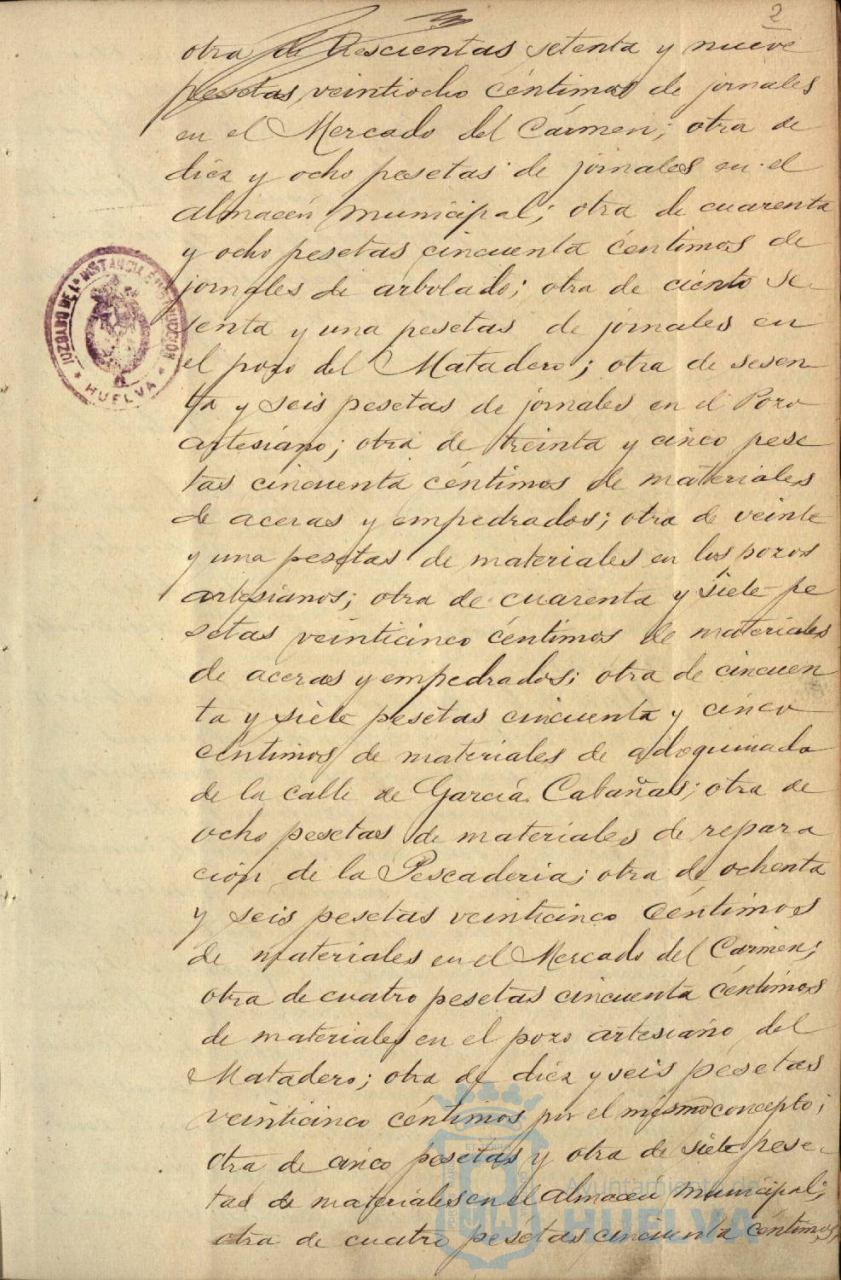 2
otra de trescientas setenta y nueve
pesetas veintiocho céntimos de jornales
en el Mercado del Cármen; otra de
diez y ocho pesetas de jornales en el
almacén municipal; otra de cuarenta
y ocho pesetas cincuenta céntimos de
jornales de arbolado; otra de ciento se-
senta y una pesetas de jornales en
el pozo del Matadero; otra de sesen-
ta y seis pesetas de jornales en el Pozo
artesiano; otra de treinta y cinco pese
tas cincuenta céntimos de materiales
de aceras y empedrados; otra de veinte
y una pesetas de materiales en los pozos
artesianos; otra de cuarenta y siete pe
setas veinticinco céntimos de materiales
de aceras y empedrados; otra de cincuen
ta y siete pesetas cincuenta y cinco
céntimos de materiales de adoquinado
de la calle de García Cabañas; otra de
ocho pesetas de materiales de repara
ción de la Pescaderia; otra de ochenta
y seis pesetas veinticinco céntimos
de materiales en el Mercado del Carmen;
otra de cuatro pesetas cincuenta céntimos
de materiales en el pozo artesiano del
Matadero; otra de diez y seis pesetas
veinticinco céntimos por el mismo concepto;
otra de cinco pesetas y otra de siete pese-
tas de materiales en el almacén municipal;
otra de cuatro pesetas cincuenta céntimos,
JUZGADO DE 1ª INSTANCIA É INSTRUCCIÓN
HUELVA
Ayuntamiento de
HUELVA